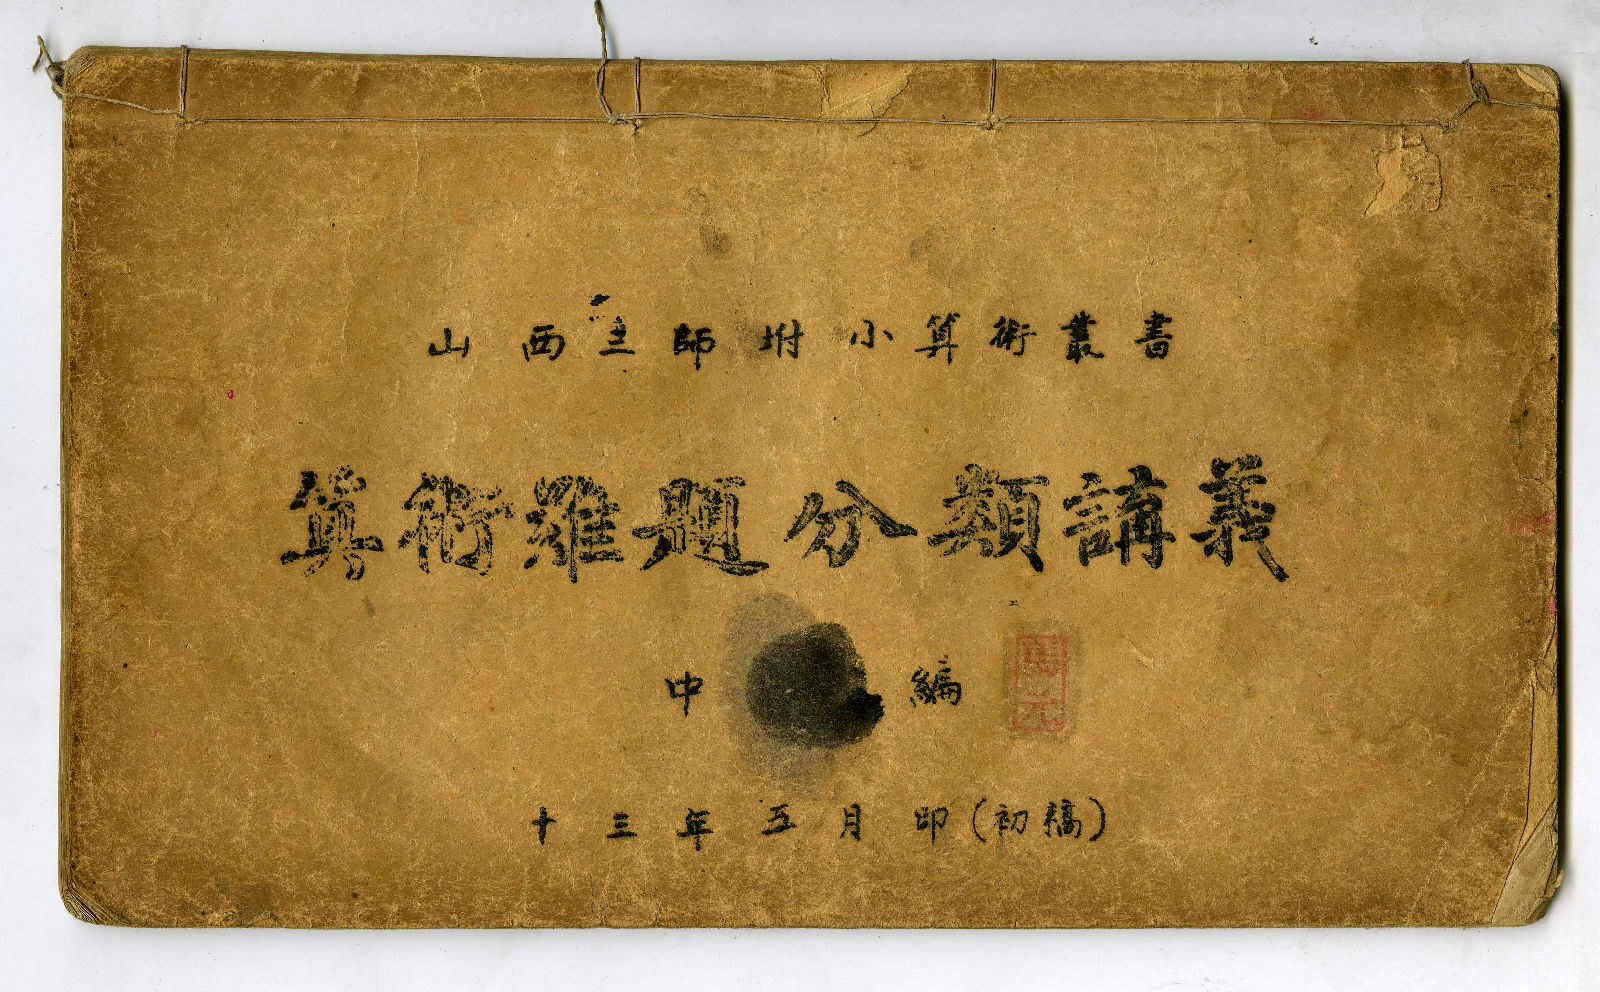 山西立師坿小算術叢書
算術難題分類講義
中編
十三年五月印(初稿)